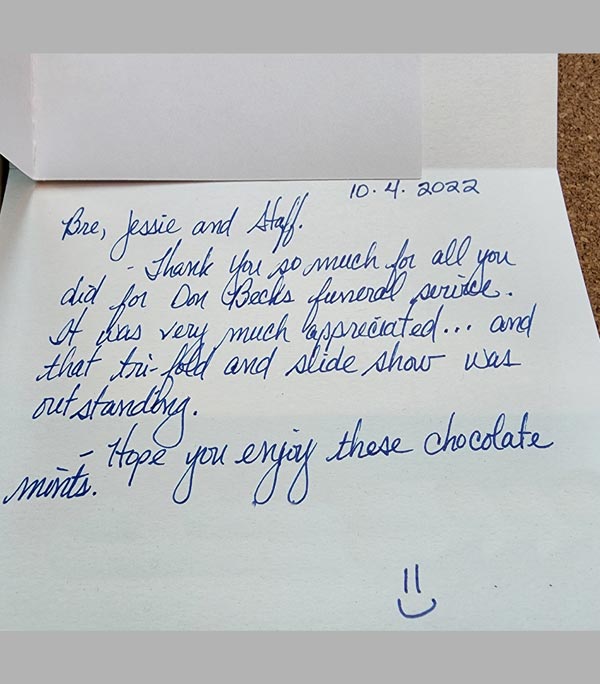 10.4.2022
Bre, Jessie and Staff.
- Thank you so much for all you
did for Don Becks funeral service.
It was very much appreciated... and
that tri-fold and slide show was
outstanding.
- Hope you enjoy these chocolate
mints.